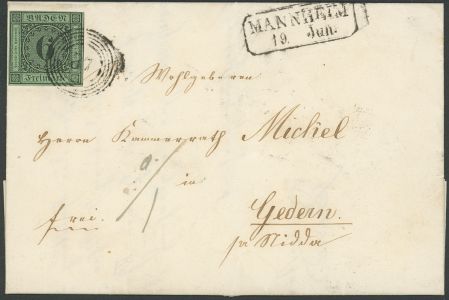 BADEN
6
Freimarke
87
MANNHEIM
19. Jun.
Wohlgeboren
Herrn Kammerrath Michel
in
frei.
Gedern.
pr Nidda